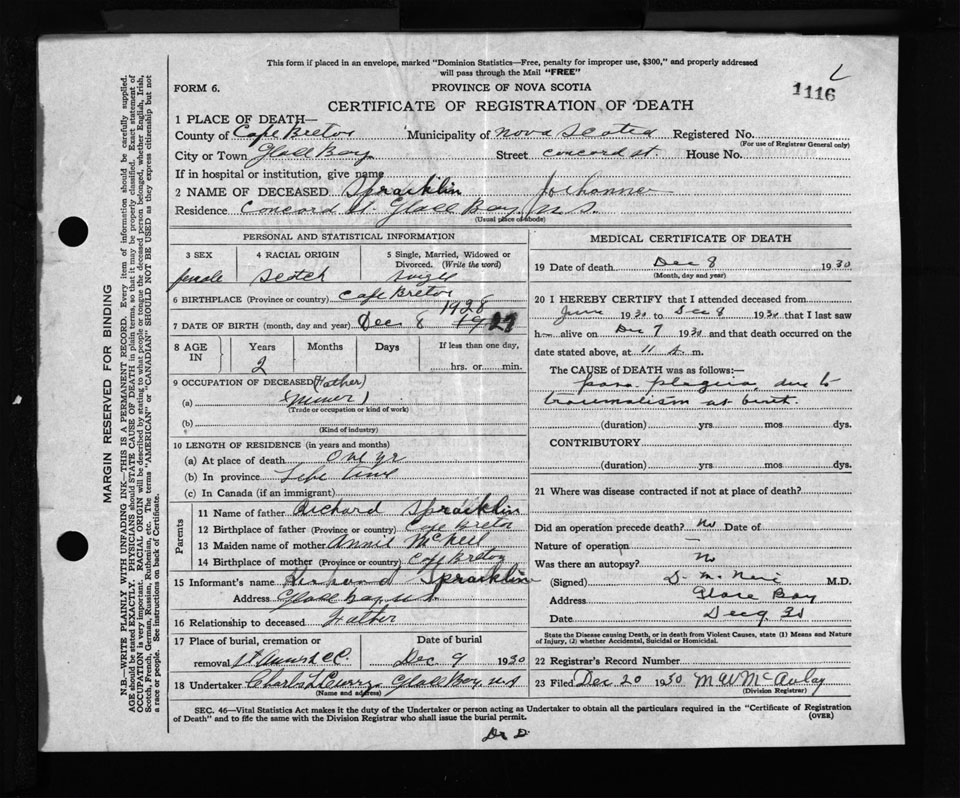 This form if placed in an envelope, marked "Dominion Statistics—Free, penalty for improper use, $300," and properly addressed
will pass through the Mail "FREE"
L
1116
FORM 6.
PROVINCE OF NOVA SCOTIA
CERTIFICATE OF REGISTRATION OF DEATH
1 PLACE OF DEATH—
County of Cape Breton Municipality of Nova Scotia Registered No.
(For use of Registrar General only)
City or Town Glace Bay Street Concord St House No.
If in hospital or institution, give name
2 NAME OF DECEASED Spracklin Johanna
Residence Concord St. Glace Bay N.S.
(Usual place of abode)
PERSONAL AND STATISTICAL INFORMATION
3 SEX 4 RACIAL ORIGIN 5 Single, Married, Widowed or
Divorced. (Write the word)
female Scotch Single
6 BIRTHPLACE (Province or country) Cape Breton
1928
7 DATE OF BIRTH (month, day and year) Dec 8 1927
8 AGE IN Years Months Days If less than one day,
2 hrs. or min.
9 OCCUPATION OF DECEASED (Father)
(a) (Miner)
(Trade or occupation or kind of work)
(b)
(Kind of industry)
10 LENGTH OF RESIDENCE (in years and months)
(a) At place of death One yr
(b) In province Life time
(c) In Canada (if an immigrant)
Parents
11 Name of father Richard Spracklin
12 Birthplace of father (Province or country) Cape Breton
13 Maiden name of mother Annie McNeil
14 Birthplace of mother (Province or country) Cape Breton
15 Informant's name Spracklin
Address Glace Bay N.S.
16 Relationship to deceased Father
17 Place of burial, cremation or Date of burial
removal St Anns R C Dec 9 1930
18 Undertaker Charles L Curry Glace Bay N.S
(Name and address)
MEDICAL CERTIFICATE OF DEATH
19 Date of death Dec 8 1930
(Month, day and year)
20 I HEREBY CERTIFY that I attended deceased from
June 1930 to Dec 8 1930 that I last saw
h alive on Dec 7 1930 and that death occurred on
date stated above, at 11 A. m.
The CAUSE of DEATH was as follows:—
para-plagia, due to
traumatism at birth.
(duration) yrs mos dys.
CONTRIBUTORY
(duration) yrs mos dys.
21 Where was disease contracted if not at place of death?
Did an operation precede death? No Date of
Nature of operation —
Was there an autopsy? No
(Signed) M.D.
Address Glace Bay
Date Dec 9 30
State the Disease causing Death, or in death from Violent Causes, state (1) Means and Nature
of Injury, (2) whether Accidental, Suicidal or Homicidal.
22 Registrar's Record Number
23 Filed Dec 20 1930 M W McAulay
(Division Registrar)
SEC. 46—Vital Statistics Act makes it the duty of the Undertaker or person acting as Undertaker to obtain all the particulars required in the "Certificate of Registration
of Death" and to file the same with the Division Registrar who shall issue the burial permit.
(OVER)
Dr D.
MARGIN RESERVED FOR BINDING
N.B.—WRITE PLAINLY WITH UNFADING INK—THIS IS A PERMANENT RECORD. Every item of information should be carefully supplied.
AGE should be stated EXACTLY. PHYSICIANS should STATE CAUSE OF DEATH in plain terms, so that it may be properly classified. Exact statement of
OCCUPATION is very important. RACIAL ORIGIN will be described by stating to what people or tongue the deceased person belonged, whether English, Irish,
Scotch, French, German, Russian, Ruthenian, etc. The terms "AMERICAN" or "CANADIAN" SHOULD NOT BE USED as they express citizenship but not
a race or people. See instructions on back of Certificate.